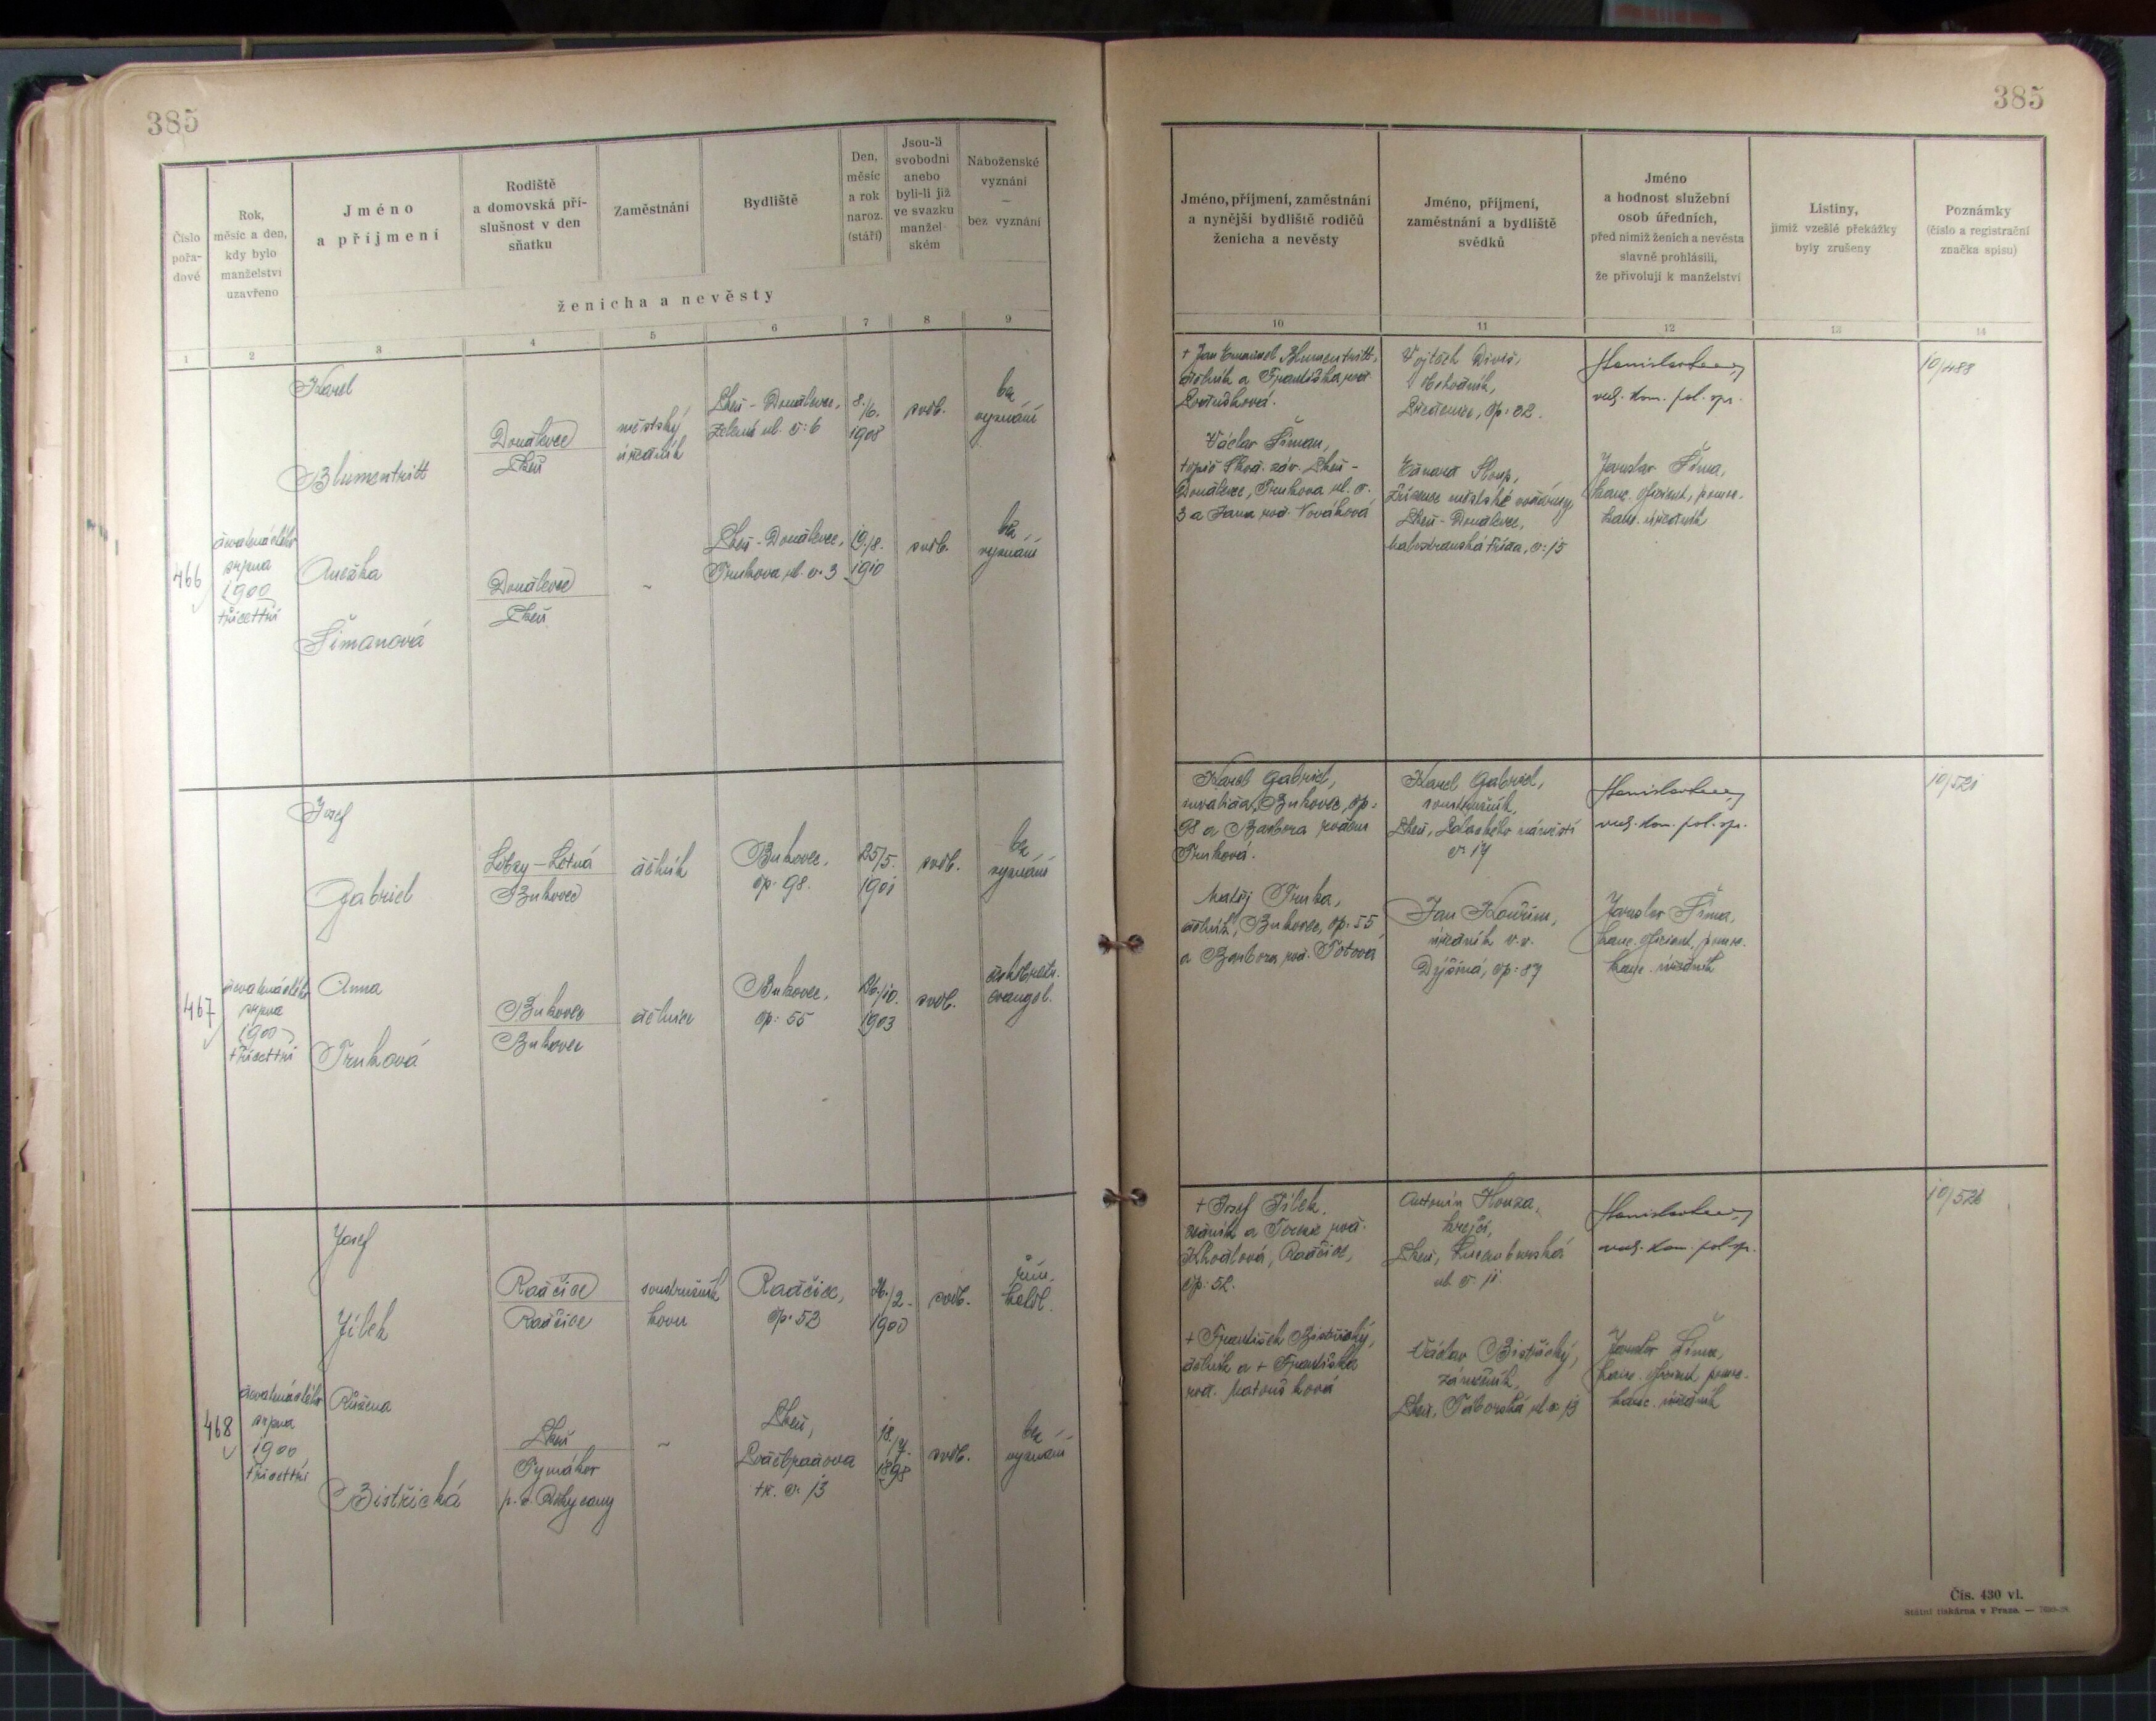 385
Číslo pořa- dové
Rok, měsíc a den, kdy bylo manželství uzavřeno
Jméno a příjmení
Rodiště a domovská pří- slušnost v den sňatku
Zaměstnání
Bydliště
Den, měsíc a rok naroz. (stáří)
Jsou-li svobodni anebo byli-li již ve svazku manžel- ském
Náboženské vyznání — bez vyznání
ženicha a nevěsty
1 2 3 4 5 6 7 8 9
Karel
Blumentritt
Doudlevce
Plzeň
městský
úředník
Plzeň - Doudlevce,
Zelená ul. č: 6
8./6.
1908
svob.
bez
vyznání
466
dvanáctého
srpna
1900
třicettři
Anežka
Šimanová
Doudlevce
Plzeň
-
Plzeň - Doudlevce,
Trnkova ul. č. 3
19./8.
1910
svob.
bez
vyznání
Josef
Gabriel
Lobzy - Letná
Bukovec
dělník
Bukovec,
čp. 98.
25/5.
1901
svob.
bez
vyznání
467
dvanáctého
srpna
1900
třicettři
Anna
Trnková
Bukovec
Bukovec
dělnice
Bukovec,
čp: 55
26./10.
1903
svob.
českobratr.
evangel.
Josef
Jílek
Radčice
Radčice
soustružník
kovu
Radčice,
čp. 52
26./2.
1900
svob.
řím.
katol.
468
dvanáctého
srpna
1900
třicettři
Růžena
Bistřická
Plzeň
Tymákov
p. o. Rokycany
-
Plzeň,
tř. č. 13
1898
svob.
bez
vyznání
385
Jméno, příjmení, zaměstnání a nynější bydliště rodičů ženicha a nevěsty
Jméno, příjmení, zaměstnání a bydliště svědků
Jméno a hodnost služební osob úředních, před nimiž ženich a nevěsta slavně prohlásili, že přivolují k manželství
Listiny, jimiž vzešlé překážky byly zrušeny
Poznámky (číslo a registrační značka spisu)
10 11 12 13 14
+ Jan Emanuel Blumentritt,
dělník a Františka roz.
Vojtěch Diviš,
čp: 32.
vrch. kom. pol. spr.
10/488
Václav Šiman,
topič Škod. záv. Plzeň -
Doudlevce, Trnkova ul. č.
3 a Jana roz. Nováková
Eduard Sloup,
zřízenec městské vodárny
Plzeň - Doudlevce,
Malostranská třída, č: 15
Jaroslav Šíma,
kanc. oficiant, pomoc.
kanc. úředník
Karel Gabriel,
invalida, Bukovec, čp.
98 a Barbora rozená
Trnková.
Karel Gabriel,
soustružník,
Plzeň, Palackého náměstí
č. 17
vrch. kom. pol. spr.
10/521
Matěj Trnka,
dělník, Bukovec, čp. 55
a Barbora roz. Totová
Jan Kouřim,
úředník v. v.
Dýšina, čp: 87
Jaroslav Šíma,
kanc. oficiant, pomoc.
kanc. úředník
+ Josef Jílek,
zedník a Terezie roz.
Khodlová, Radčice,
čp: 52.
Antonín Houza,
krejčí,
Plzeň, Lucemburská
ul. č. 11.
vrch. kom. pol. sp.
10/526
+ František Bistřický,
dělník a + Františka
roz. Matoušková
Václav Bistřický,
zámečník,
Plzeň, Táborská ul. č. 13
Jaroslav Šíma,
kanc. oficiant pomoc.
kanc. úředník
Čís. 430 vl.
Státní tiskárna v Praze. —